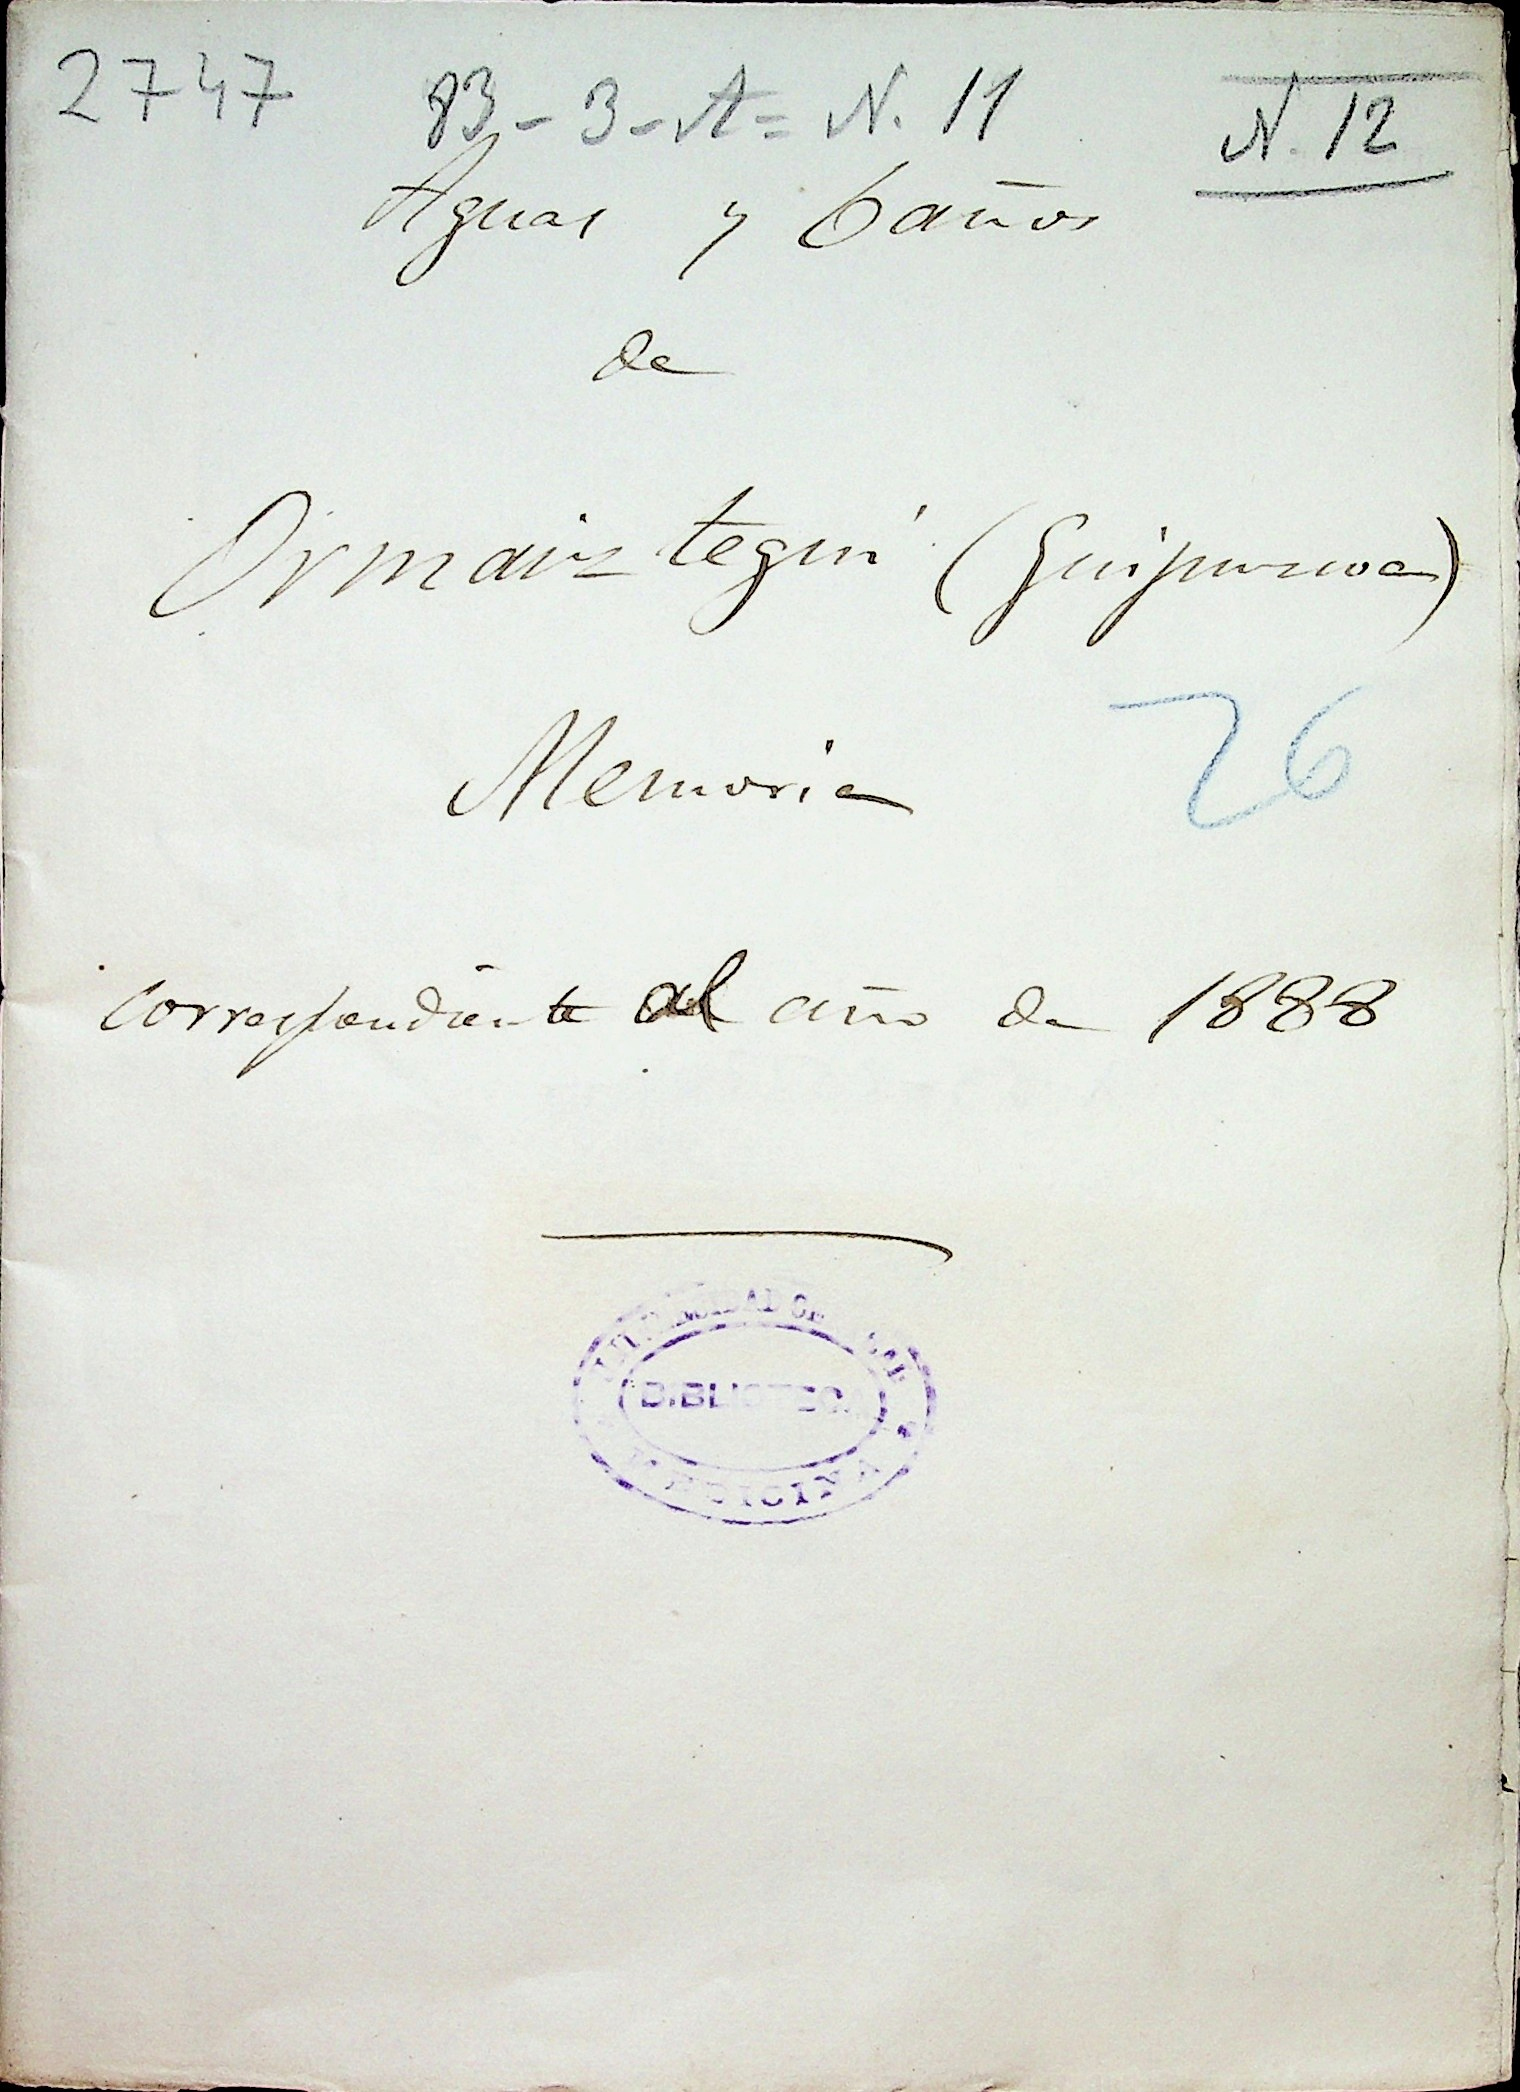 2747 83-3-A= N. 11 N. 12
Aguas y baños
de
Ormaiztegui (Guipuzcoa)
Memoria
26
correspondiente al año de 1888
BIBLIOTECA
MEDICINA